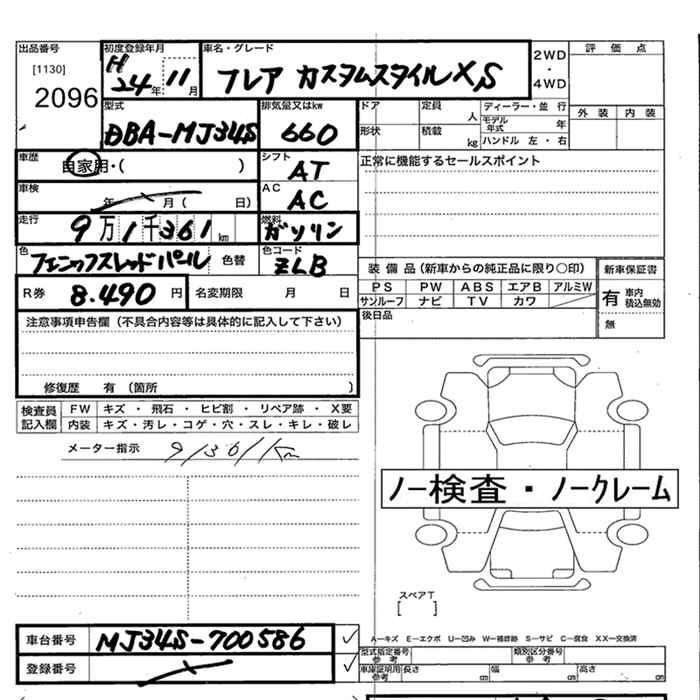 出品番号 [1130] 2096
初度登録年月 H24年11月
車名・グレード フレア カスタムスタイルXS
2WD・4WD
評価点
外装 内装
型式 DBA-MJ34S
排気量又はkw 660
ドア 定員 人
形状 積載 kg
ディーラー・並行
モデル年式 年
ハンドル 左・右
車歴 自家用・( )
シフト AT
正常に機能するセールスポイント
車検 年 月( 日)
AC AC
走行 9万1千361km
燃料 ガソリン
色 フェニックスレッドパール 色替
色コード ZLB
R券 8.490円
名変期限 月 日
装備品(新車からの純正品に限り○印)
PS PW ABS エアB アルミW
サンルーフ ナビ TV カワ
後日品
新車保証書
有 車内 積込無効
無
注意事項申告欄(不具合内容等は具体的に記入して下さい)
修復歴 有(箇所 )
検査員記入欄
FW キズ・飛石・ヒビ割・リペア跡・X要
内装 キズ・汚レ・コゲ・穴・スレ・キレ・破レ
メーター指示 91361km
ノー検査・ノークレーム
スペアT
[ ]
車台番号 MJ34S-700586
登録番号
A―キズ E―エクボ U―凹み W―補修跡 S―サビ C―腐食 XX―交換済
型式指定番号 参考
類別区分番号 参考
車庫証明用 参考 長さ cm 幅 cm 高さ cm